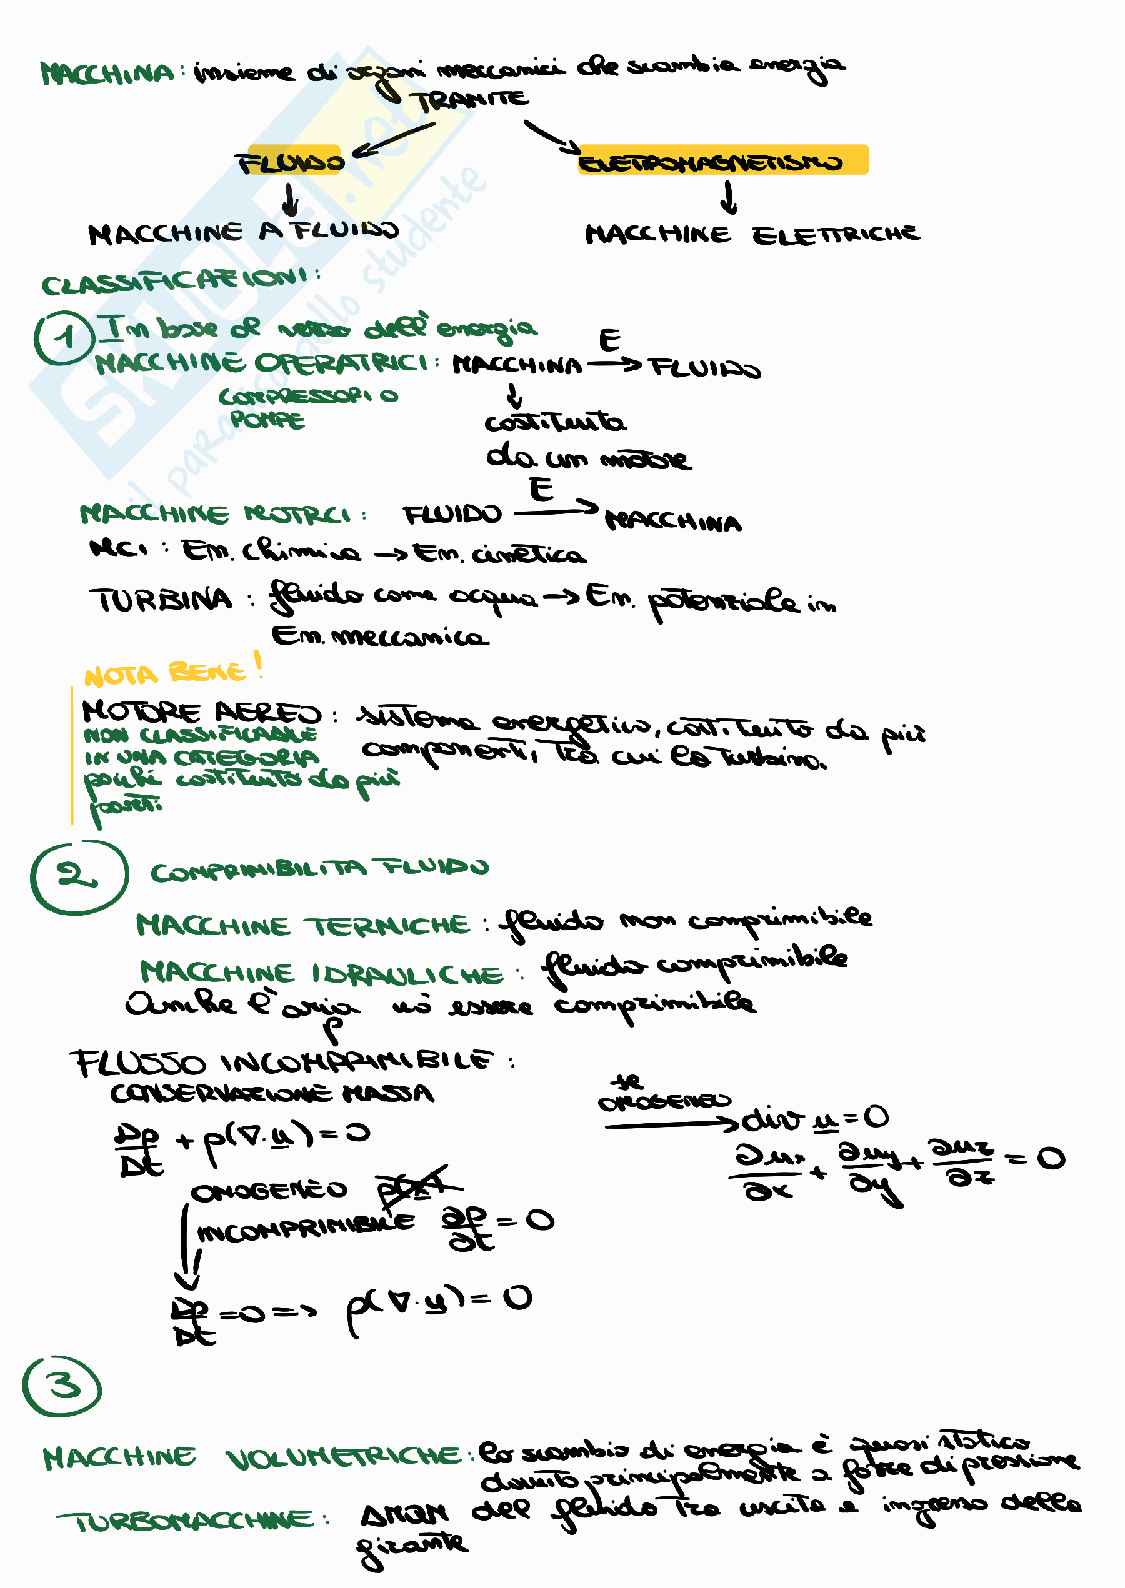 MACCHINA: insieme di organi meccanici che scambia energia
TRAMITE
FLUIDO ELETTROMAGNETISMO
MACCHINE A FLUIDO MACCHINE ELETTRICHE
CLASSIFICAZIONI:
1 In base al verso dell'energia
MACCHINE OPERATRICI: MACCHINA E → FLUIDO
COMPRESSORI O
POMPE
costituita
da un motore
MACCHINE MOTRCI: FLUIDO E → MACCHINA
MCI: En. chimica → En. cinetica
TURBINA: fluido come acqua → En. potenziale in
En. meccanica
NOTA BENE!
MOTORE AEREO: sistema energetico, costituito da più
componenti, tra cui la turbina.
NON CLASSIFICABILE
IN UNA CATEGORIA
poiché costituito da più
parti
2 COMPRIMIBILITA FLUIDO
MACCHINE TERMICHE: fluido non comprimibile
MACCHINE IDRAULICHE: fluido comprimibile
Anche l'aria può essere comprimibile
FLUSSO INCOMPRIMIBILE:
CONSERVAZIONE MASSA
Dρ/Dt + ρ(∇·u) = 0
se
OMOGENEO
→ div u = 0
∂ux/∂x + ∂uy/∂y + ∂uz/∂z = 0
OMOGENEO
INCOMPRIMIBILE ∂ρ/∂t = 0
Dρ/Dt = 0 => ρ(∇·u) = 0
3
MACCHINE VOLUMETRICHE: lo scambio di energia è quasi statico
dovuto principalmente a forze di pressione
TURBOMACCHINE: del fluido tra uscita e ingresso della
girante
SKUOLA.net
il paradiso dello studente